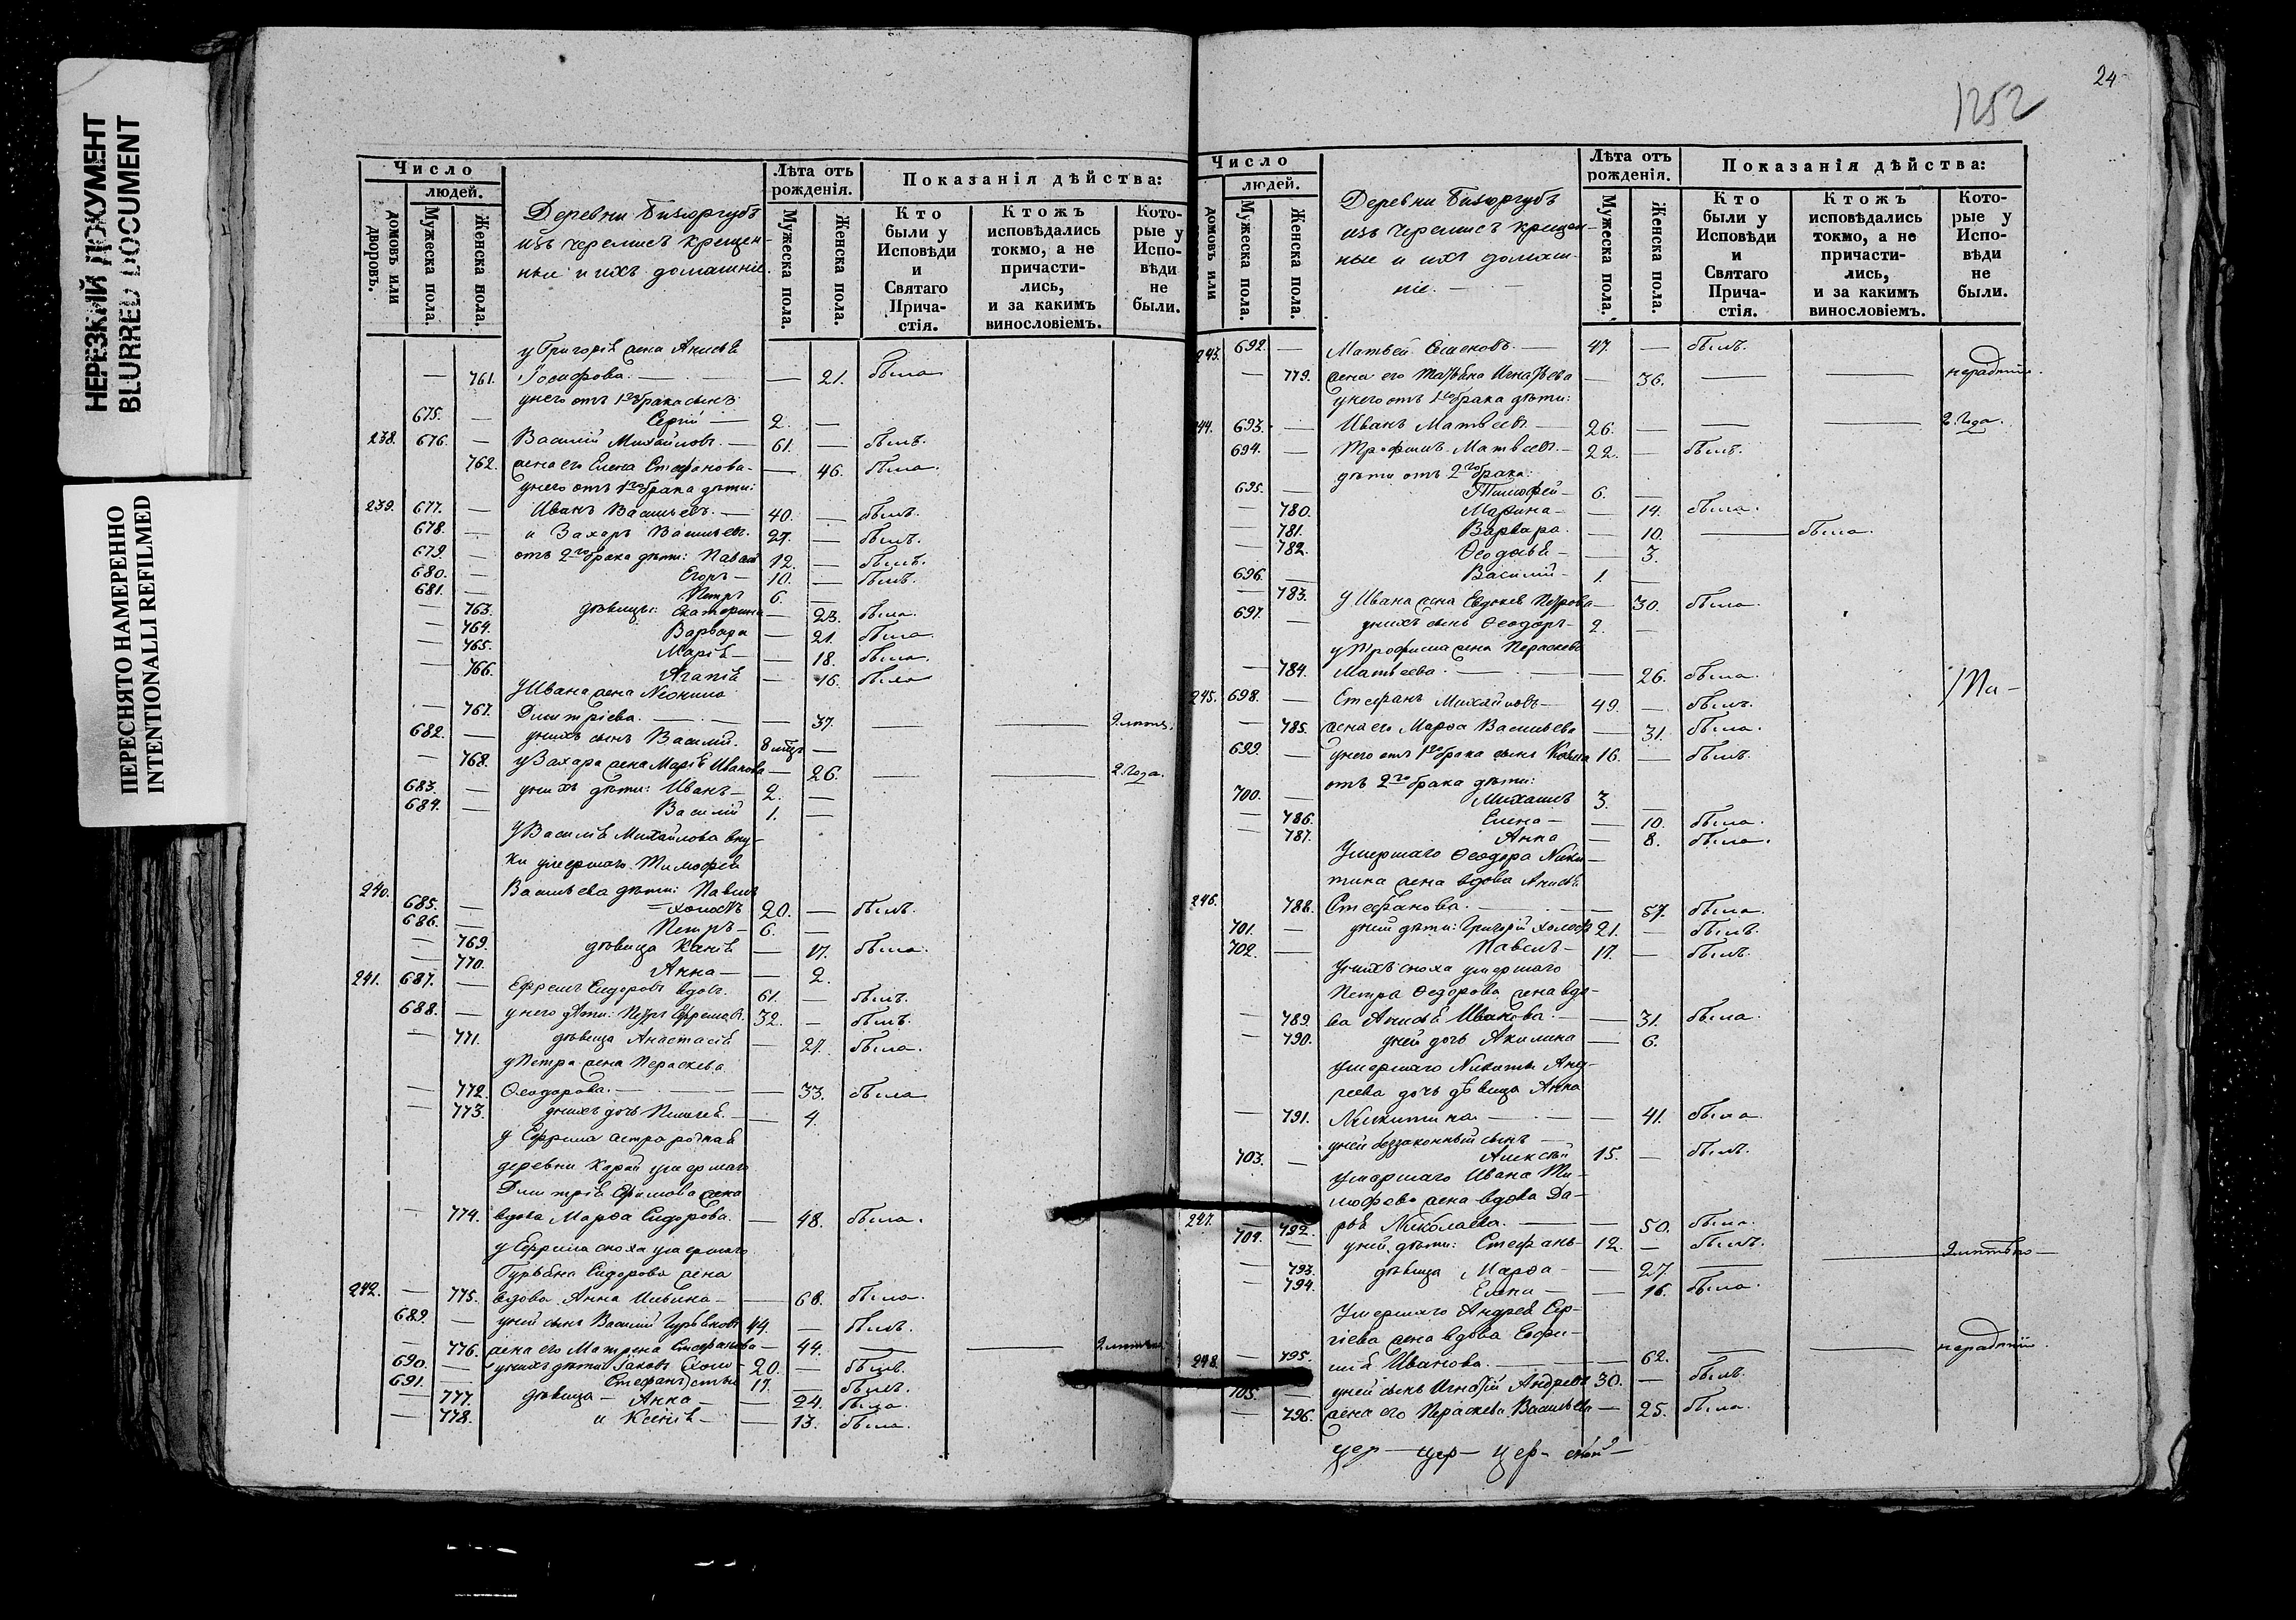 НЕРЕЗКИЙ ДОКУМЕНТ
BLURRED DOCUMENT
ПЕРЕСНЯТО НАМЕРЕННО
INTENTIONALLI REFILMED
Число
людей.
домовъ или дворовъ.
Мужеска пола.
Женска пола.
Деревни
изъ черемисъ крещен-
ные и ихъ домашніе.
Лѣта отъ рожденія.
Мужеска пола.
Женска пола.
Показанія дѣйства:
Кто были у Исповѣди и Святаго Прича-стія.
Ктожъ исповѣдались токмо, а не причасти-лись, и за какимъ винословіемъ.
Кото-рые у Испо-вѣди не были.
у Григорія жена Анисья
— 761. Іосифова. — — 21. была
у него отъ 1го брака сынъ:
675. — Сергій — 2. —
238. 676. — Василій Михайловъ. — 61. — былъ.
762. жена его Елена Стефанова — — 46. была.
у него отъ 1го брака дѣти:
239. 677. — Иванъ Васильевъ. — 40. — былъ.
678. — и Захаръ Васильевъ. 27. — былъ.
679. — отъ 2го брака дѣти: Павелъ 12. — былъ.
680. — Егоръ — 10. — былъ.
681. — Петръ 6. —
— 763. дѣвицы: Екатерина — 23. была.
— 764. Варвара — 21. была.
— 765. Марія — — 18. была.
— 766. Агапія — 16. была
у Ивана жена Неонила
— 767. Дмитріева. — — 37. — —
682. — у нихъ сынъ Василій. 8 мцъ —
— 768. у Захара жена Марія Иванова — 26. — — 2 года.
683. — у нихъ дѣти: Иванъ — 2. —
684. — Василій 1. —
У Василія Михайлова вну-
ки умершаго Тимофея
240. Васильева дѣти: Павелъ
685. — холостъ 20. — былъ.
686. — Петръ — 6. —
— 769. дѣвица — 17. была.
— 770. Анна — — 2.
241. 687. — Ефремъ Сидоровъ вдов. 61. — былъ.
688. — у него дѣти: Петръ Ефремовъ. 32. — былъ.
— 771. дѣвица Анастасія — 27. была.
у Петра жена Параскева
— 772. Ѳеодорова. — — 33. была
— 773. у нихъ дочь — 4.
у Ефрема
деревни Карай умершаго
Дмитрія Ефимова жена
— 774. вдова Марѳа Сидорова. — 48. была.
у Ефрема сноха умершаго
Гурьяна Сидорова жена
242. — 775. вдова Анна Ильина — — 68. была.
689. — у ней сынъ Василій Гурьяновъ 44. — былъ.
— 776. жена его Матрена Стефанова — 44. — —
690. — у нихъ дѣти Іаковъ 20. — былъ.
691. — Стефанъ 17. — былъ.
— 777. дѣвица — Анна — — 24. была.
— 778. и Ксенія — — 13. была.
24
1252
Число
людей.
домовъ или
Мужеска пола.
Женска пола.
Деревни
изъ черемисъ крещен-
ные и ихъ домаш-
ніе. —
Лѣта отъ рожденія.
Мужеска пола.
Женска пола.
Показанія дѣйства:
Кто были у Исповѣди и Святаго Прича-стія.
Ктожъ исповѣдались токмо, а не причасти-лись, и за какимъ винословіемъ.
Кото-рые у Испо-вѣди не были.
243. 692. — Матвей — 47. — былъ.
— 779. жена его Татьяна Игнатьева — 36. — —
у него отъ 1го брака дѣти:
244. 693. — Иванъ Матвеевъ 26. — — — 2 года.
694. — Трофимъ Матвеевъ — 22. — былъ.
дѣти отъ 2го брака:
695. — Тимофей — 6. —
— 780. Марина — — 14. была.
— 781. Варвара. — 10. — была.
— 782. Ѳеодосья — — 3.
696. — Василій — 1. —
— 783. у Ивана жена Евдокея Петрова — 30. была.
697. — у нихъ сынъ Ѳеодоръ — 2. —
у Трофима жена Параскева
— 784. Матвеева. — — 26. была.
245. 698. — Стефанъ Михайловъ — 49. — былъ.
— 785. жена его Марѳа Васильева — 31. была.
699. — у него отъ 1го брака сынъ Козма 16. — былъ.
отъ 2го брака дѣти:
700. — Михаилъ 3. —
— 786. Елена — — 10. была.
— 787. Анна — 8. была.
Умершаго Ѳеодора Ники-
тина жена вдова Анисья
246. 788. Стефанова. — — 57. была.
701. — у ней дѣти: Григорій холостъ 21. — былъ.
702. — Павелъ — 17. — былъ.
У нихъ сноха умершаго
Петра Ѳедорова жена вдо-
— 789. ва Анисья Иванова. — — 31. была.
— 790. у ней дочь Акилина — 6.
умершаго Никиты Анд-
реева дочь дѣвица Анна
— 791. Никитина. — — 41. была.
у ней беззаконный сынъ —
703. — Алексѣй 15. — былъ.
умершаго Ивана Ти-
мофеева жена вдова Да-
247. — 792. рья Николаева. — — 50. была.
704. — у ней дѣти: Стефанъ — 12. — былъ.
— 793. дѣвица Марѳа — — 27 — —
— 794. Елена — — 16. была.
Умершаго Андрея Сер-
гіева жена вдова Евфи-
248. — 795. мія Иванова. — — 62. — —
705. — у ней сынъ Игнатій Андреевъ 30. — былъ.
— 796. жена его Параскева Васильева — 25. была.